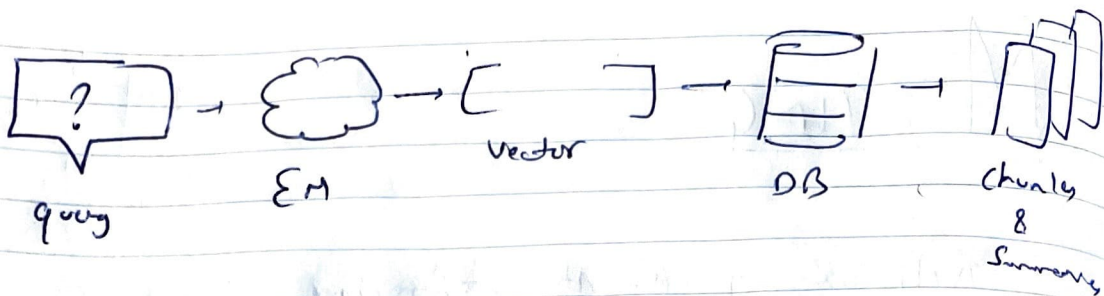 ?
query
EM
vector
DB
Chunks
&
Summaries